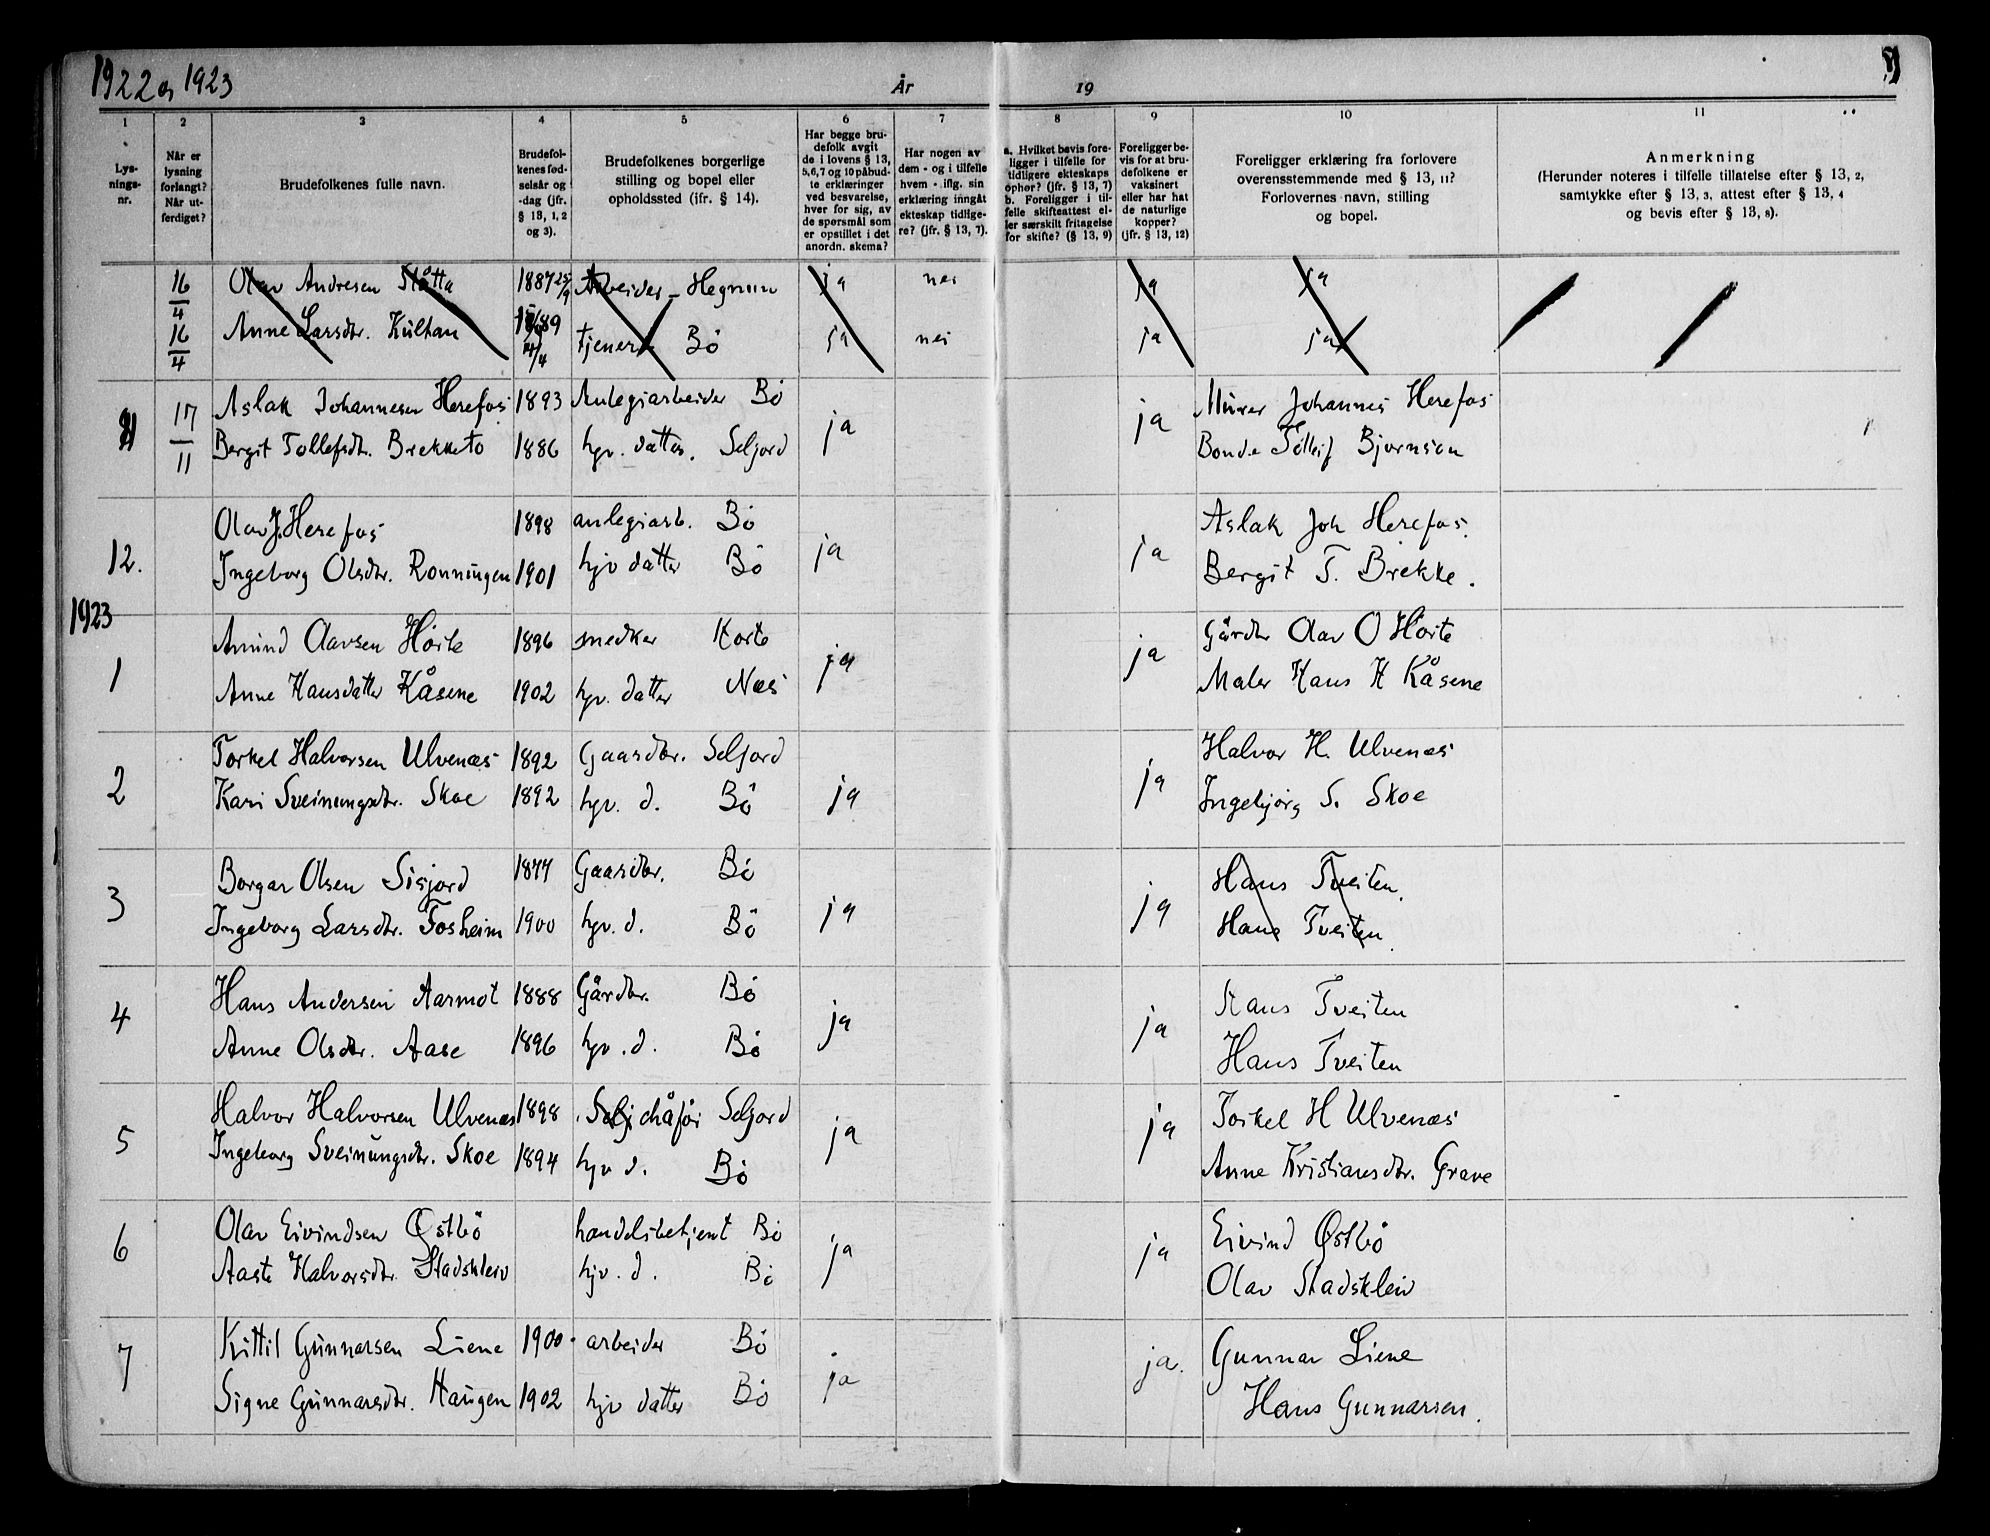 1922 og 1923
År
19
1
2
3
4
5
6
7
8
9
10
11
Lys-
nings-
nr.
Når er
lysning
forlangt?
Når ut-
ferdiget?
Brudefolkenes fulle navn.
Brudefol-
kenes fød-
selsår og
-dag (jfr.
§ 13, 1, 2
og 3).
Brudefolkenes borgerlige
stilling og bopel eller
opholdssted (jfr. § 14).
Har begge bru-
defolk avgit
de i lovens § 13,
5, 6, 7 og 10 påbud-
te erklæringer
ved besvarelse,
hver for sig, av
de spørsmål som
er opstillet i det
anordn. skema?
Har nogen av
dem - og i tilfelle
hvem - iflg. sin
erklæring inngåt
ekteskap tidlige-
re? (jfr. § 13, 7).
a. Hvilket bevis fore-
ligger i tilfelle for
tidligere ekteskaps
ophør? (jfr. § 13, 7)
b. Foreligger i til-
felle skifteattest el-
ler særskilt fritagelse
for skifte? (§ 13, 9)
Foreligger be-
vis for at bru-
defolkene er
vaksinert
eller har hat
de naturlige
kopper?
(jfr. § 13, 12)
Foreligger erklæring fra forlovere
overensstemmende med § 13, 11?
Forlovernes navn, stilling
og bopel.
Anmerkning
(Herunder noteres i tilfelle tillatelse efter § 13, 2,
samtykke efter § 13, 3, attest efter § 13, 4
og bevis efter § 13, 8).
16/4 Olav Andresen Slåtta 1887 25/9 Arbeider - Hegnun ja nei ja ja
16/4 Anne Larsdtr. Kultan 4/4 tjener Bö ja nei ja ja
17/11 Aslak Johannesen Herefos 1893 Anlegsarbeider Bö ja ja Murer Johannes Herefos
Bergit Tollefsdtr. Brekketo 1886 hgv. datter. Seljord Bonde Tollef Bjornson
12. Olav J. Herefos 1898 anlegsarb. Bö ja ja Aslak Joh Herefos.
Ingeborg Olsdtr. Ronningen 1901 hjv datter Bö Bergit T. Brekke.
1923
1 Amund Olavsen Hörte 1896 snedker Horte ja ja Gårdbr Olav O Horte
Anne Hansdatter Kåsene 1902 hgv. datter Næs Maler Hans H Kåsene
2 Torkel Halvorsen Ulvenæs 1892 Gaardbr. Seljord ja ja Halvor H. Ulvenæs
Kari Sveinungsdtr. Skoe 1892 hgv. d. Bö Ingebjörg S. Skoe
3 Borgar Olsen Sisjord 1877 Gaardbr. Bö ja ja Hans Tveiten.
Ingeborg Larsdtr. Fosheim 1900 hgv. d. Bö Hans Tveiten.
4 Hans Andersen Aarmot 1888 Gårdbr. Bö ja ja Hans Tveiten
Anne Olsdtr. Aase 1896 hgv. d. Bö Hans Tveiten
5 Halvor Halvorsen Ulvenæs 1898 Selj chåför Seljord ja ja Torkel H Ulvenæs
Ingeborg Sveinungsdtr. Skoe 1894 hgv d. Bö Anne Kristiansdtr. Grave
6 Olav Eivindsen Østbö handelsbetjent Bö ja ja Eivind Østbö
Aaste Halvorsdtr. Stadskleiv hjv. d. Bö Olav Stadskleiv
7 Kittil Gunnarsen Liene 1900 arbeider Bö ja ja. Gunnar Liene
Signe Gunnarsdtr. Haugen 1902 hjv datter Bö Hans Gunnarsen.